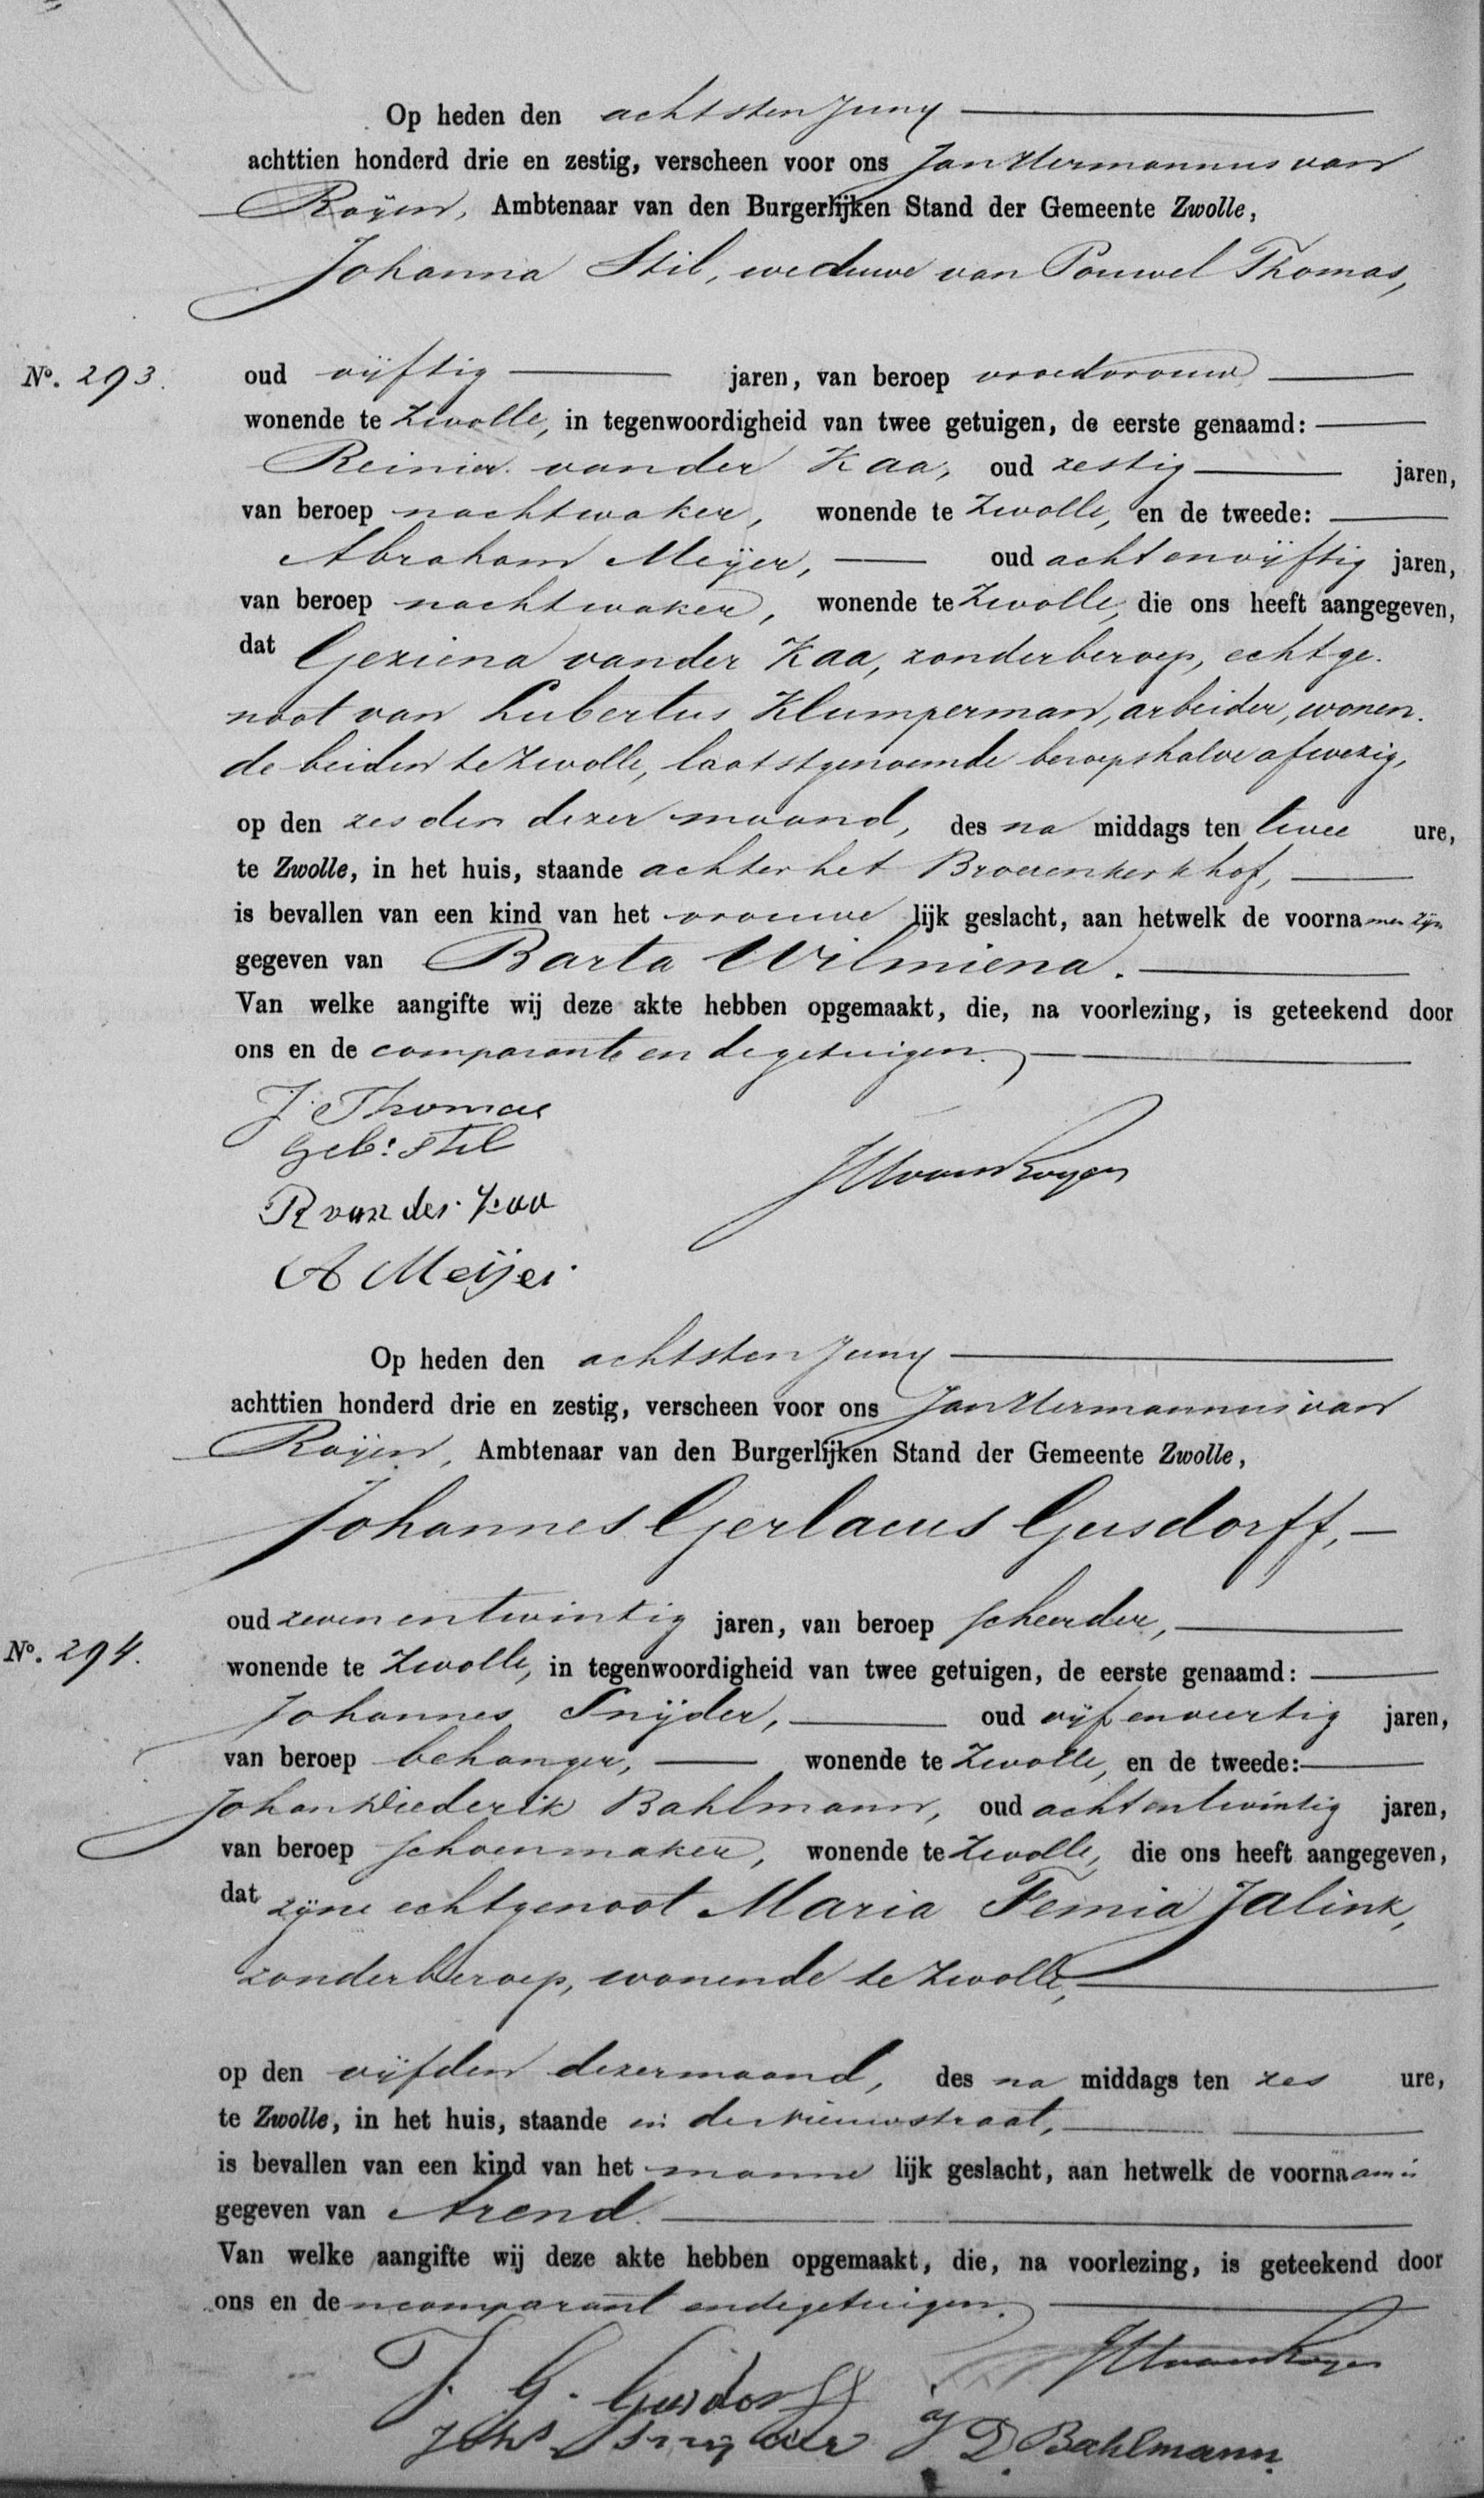 Op heden den achtsten Juny
achttien honderd drie en zestig, verscheen voor ons Jan Hermannus van
Royen, Ambtenaar van den Burgerlijken Stand der Gemeente Zwolle,
Johanna Stil, weduwe van Pouwel Thomas,
No. 293.
oud vijftig jaren, van beroep vroedvrouw
wonende te Zwolle, in tegenwoordigheid van twee getuigen, de eerste genaamd:
Reinier van der Kaa, oud zestig jaren,
van beroep nachtwaker, wonende te Zwolle, en de tweede:
Abraham Meijer, oud achtenvijftig jaren,
van beroep nachtwaker, wonende te Zwolle, die ons heeft aangegeven,
dat Geziena van der Kaa, zonder beroep, echtge-
noot van Lubertus Klumperman, arbeider, wonen-
de beiden te Zwolle, laatstgenoemde beroepshalve afwezig,
op den zesden dezer maand, des na middags ten twee ure,
te Zwolle, in het huis, staande achter het Broerenkerkhof,
is bevallen van een kind van het vrouwe lijk geslacht, aan hetwelk de voornamen zijn
gegeven van Barta Wilmiena.
Van welke aangifte wij deze akte hebben opgemaakt, die, na voorlezing, is geteekend door
ons en de comparante en de getuigen.
J. Thomas
geb: Stil
JH van Royen
R van der Kaa
A Meijer
Op heden den achtsten Juny
achttien honderd drie en zestig, verscheen voor ons Jan Hermannus van
Royen, Ambtenaar van den Burgerlijken Stand der Gemeente Zwolle,
Johannes Gerlacus Gusdorff,
No. 294.
oud zevenentwintig jaren, van beroep scheerder,
wonende te Zwolle, in tegenwoordigheid van twee getuigen, de eerste genaamd:
Johannes Snijder, oud vijfenveertig jaren,
van beroep behanger, wonende te Zwolle, en de tweede:
Johan Diederik Bahlmann, oud achtentwintig jaren,
van beroep schoenmaker, wonende te Zwolle, die ons heeft aangegeven,
dat zijne echtgenoot Maria Femia Jalink,
zonder beroep, wonende te Zwolle,
op den vijfden dezer maand, des na middags ten zes ure,
te Zwolle, in het huis, staande in de Nieuwstraat,
is bevallen van een kind van het manne lijk geslacht, aan hetwelk de voornaam is
gegeven van Arend.
Van welke aangifte wij deze akte hebben opgemaakt, die, na voorlezing, is geteekend door
ons en den comparant en de getuigen.
JH van Royen
J. G. Gusdorff
Johs Snijder J D. Bahlmann.